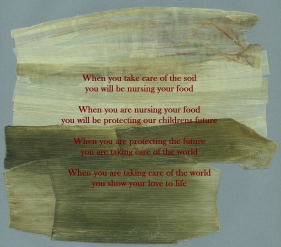 When you take care of the soil
you will be nursing your food
When you are nursing your food
you will be protecting our childrens future
When you are protecting the future
you are taking care of the world
When you are taking care of the world
you show your love to life